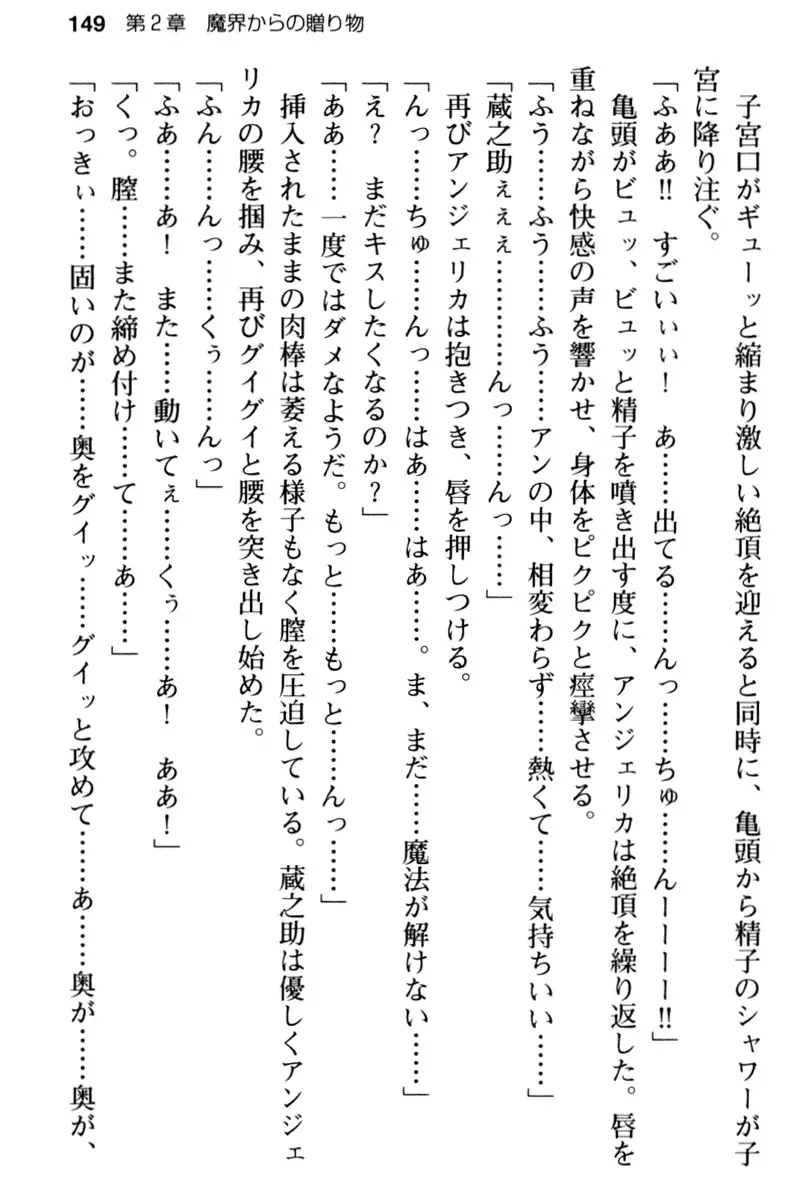 149 第2章 魔界からの贈り物
子宮口がギューッと縮まり激しい絶頂を迎えると同時に、亀頭から精子のシャワーが子
宮に降り注ぐ。
「ふああ!! すごいぃぃ! あ……出てる……んっ……ちゅ……んーーーー!!」
亀頭がビュッ、ビュッと精子を噴き出す度に、アンジェリカは絶頂を繰り返した。唇を
重ねながら快感の声を響かせ、身体をピクピクと痙攣させる。
「ふう……ふう……ふう……アンの中、相変わらず……熱くて……気持ちいい……」
「蔵之助ぇぇぇ…………んっ……んっ……」
再びアンジェリカは抱きつき、唇を押しつける。
「んっ……ちゅ……んっ……はあ……はあ……。ま、まだ……魔法が解けない……」
「え? まだキスしたくなるのか?」
「ああ……一度ではダメなようだ。もっと……もっと……んっ……」
挿入されたままの肉棒は萎える様子もなく膣を圧迫している。蔵之助は優しくアンジェ
リカの腰を掴み、再びグイグイと腰を突き出し始めた。
「ふん……んっ……くぅ……んっ」
「ふあ……あ! また……動いてぇ……くぅ……あ! ああ!」
「くっ。膣……また締め付け……て……あ……」
「おっきぃ……固いのが……奥をグイッ……グイッと攻めて……あ……奥が……奥が、